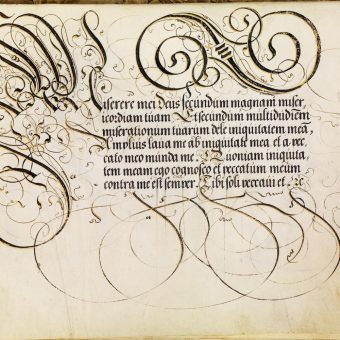 Miserere mei Deus secundum magnam miser,
icordiam tuam Et secundum multitudinem
miserationum tuarum dele iniquitatem meā,
Amplius laua me ab iniquitate mea et a pec,
cato meo munda me Quoniam iniquita,
tem meam ego cognosco et peccatum meum
contra me est semper. Tibi soli peccaui et